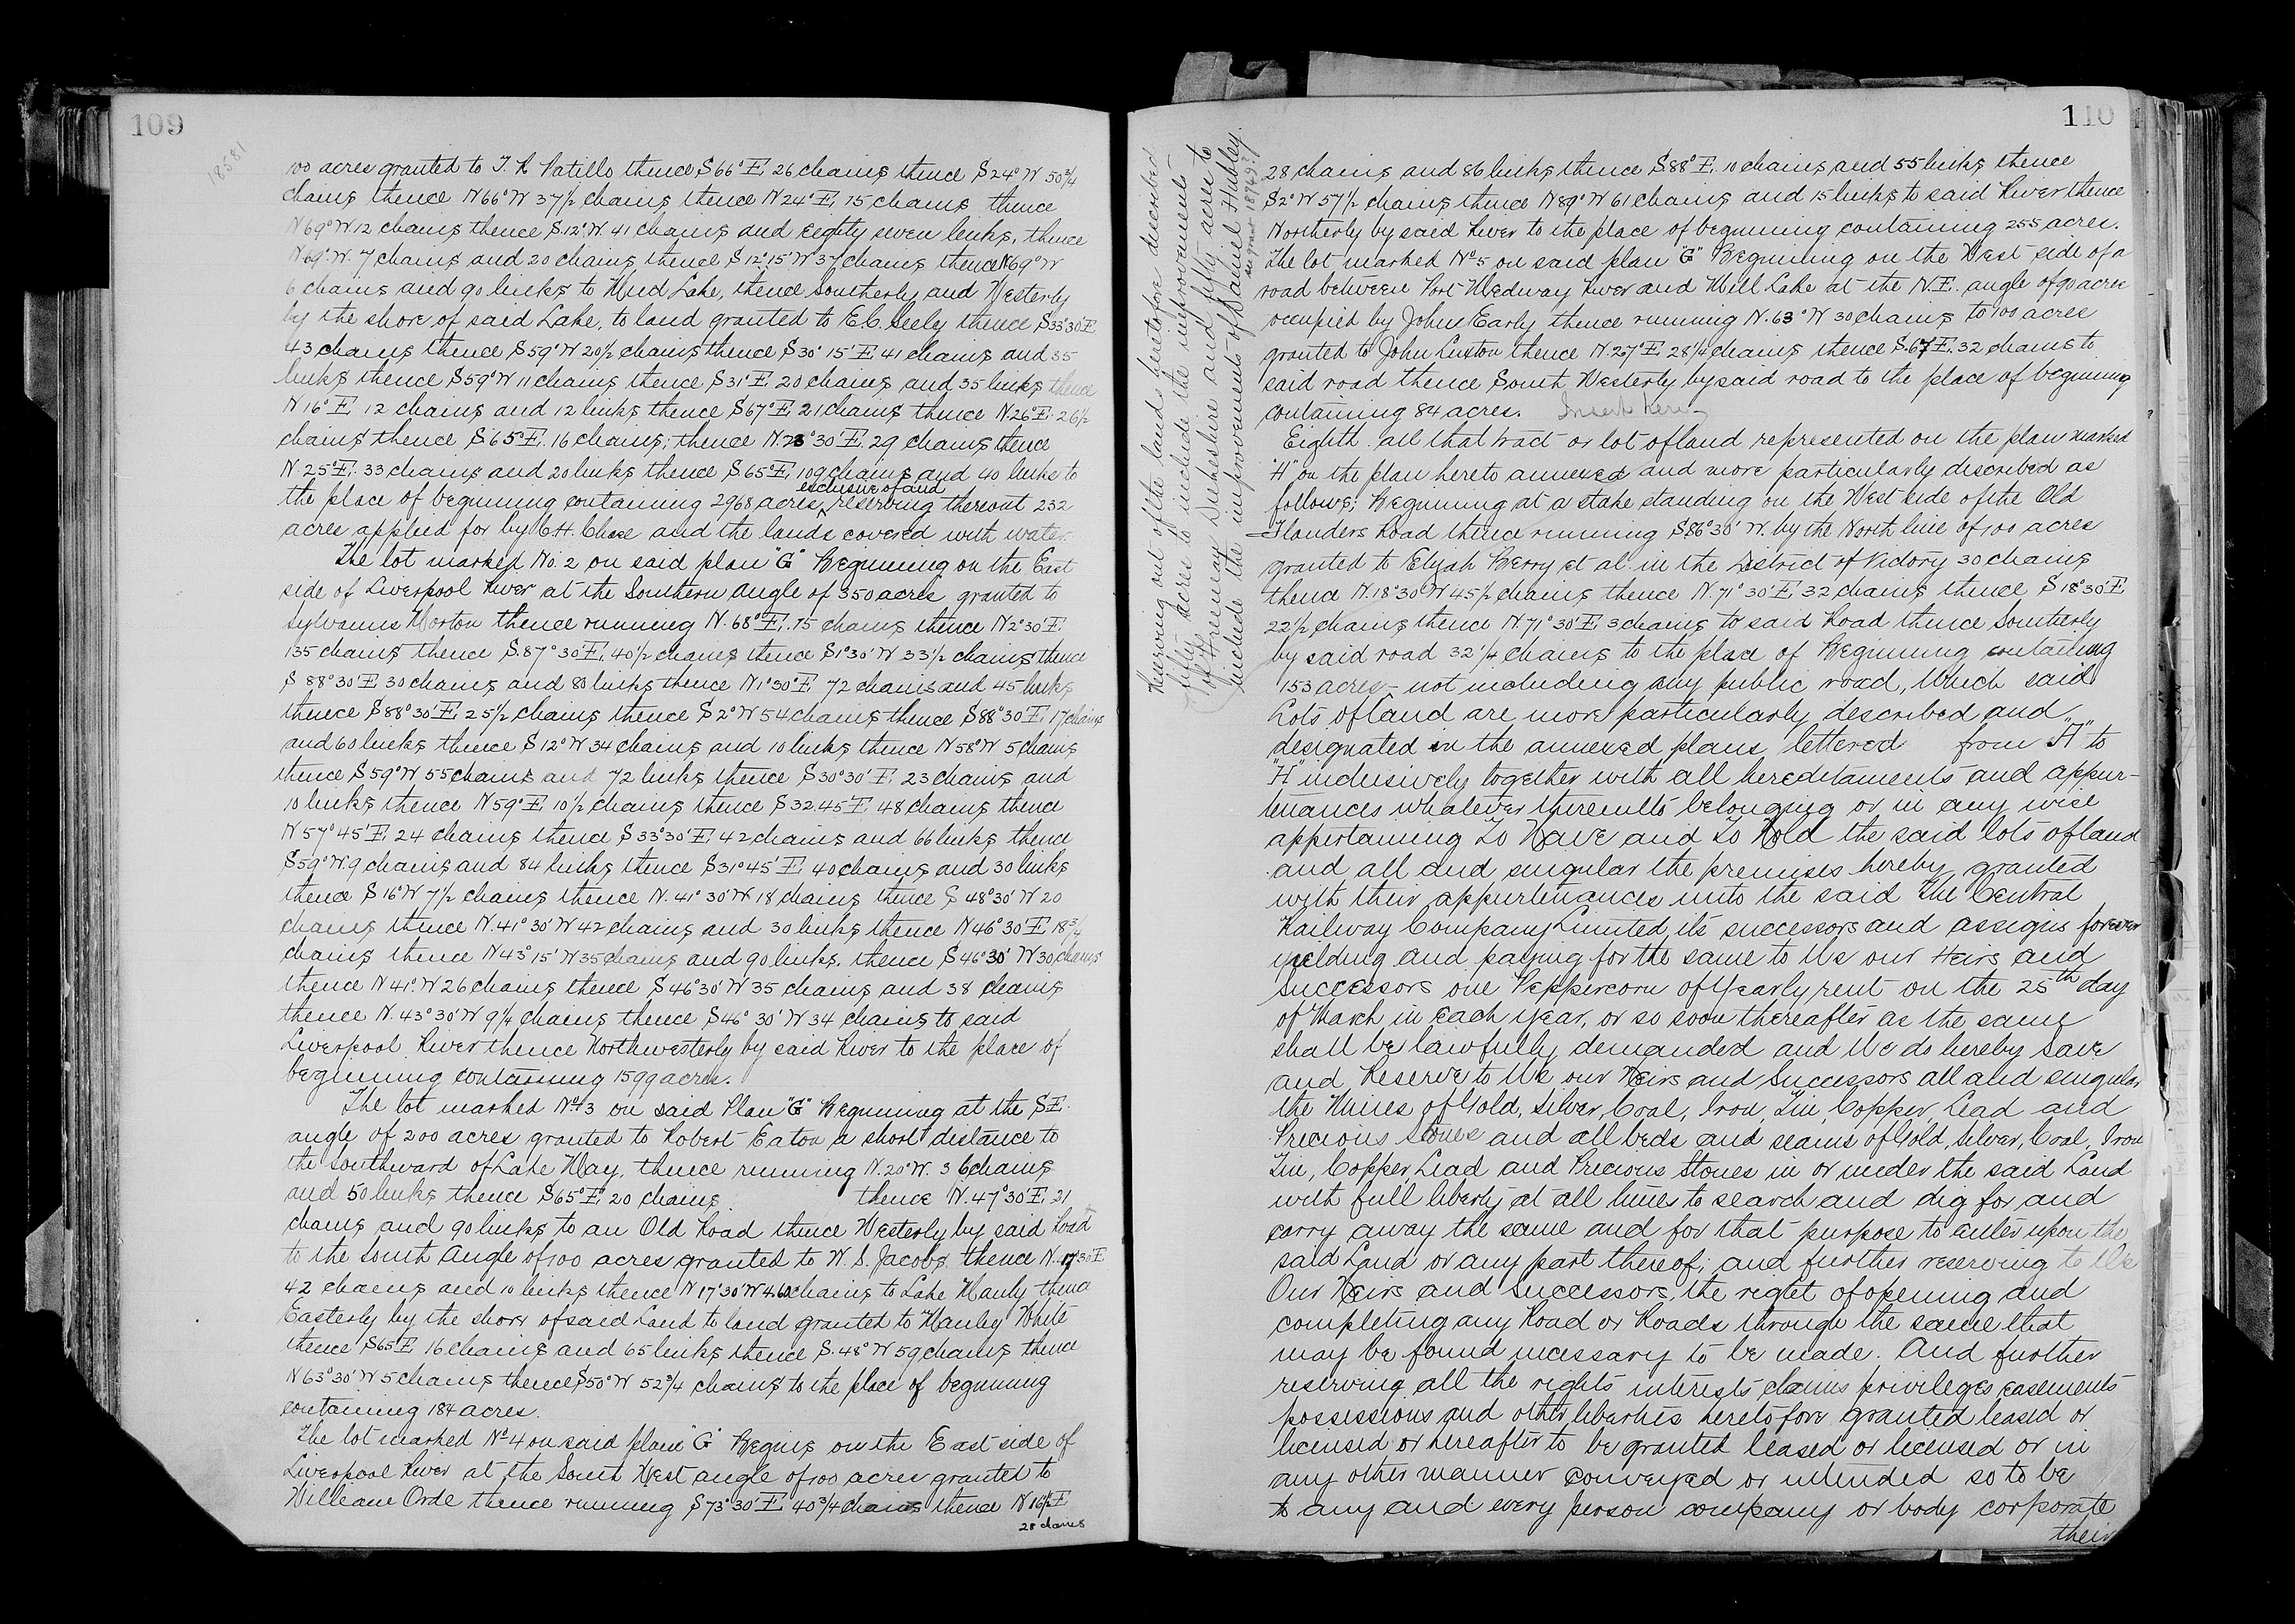 109
18581
100 acres granted to T. R. Patillo thence S66°E, 26 chains thence S24°W 50 3/4
chains thence N66°W 37 1/2 chains thence N24°E, 15 chains thence
N69°W 12 chains thence S.12°.W. 41 chains and eighty seven links, thence
N69°.W. 7 chains and 20 chains thence S12°15'W 37 chains thence N69°W
6 chains and 90 links to Mud Lake, thence southerly and Westerly
by the shore of said Lake, to land granted to E.C. Seely thence S33°30'E.
43 chains thence S59°W 20 1/2 chains thence S30°15'E 41 chains and 35
links thence S59°W 11 chains thence S31°E 20 chains and 35 links thence
N16°E 12 chains and 12 links thence S67°E 21 chains thence N26°E. 26 1/2
chains thence S65°E. 16 chains; thence N.23°30'E. 29 chains thence
N.25°E. 33 chains and 20 links thence S65°E 109 chains and 40 links to
exclusive of and
the place of beginning containing 2968 acres, reserving thereout 232
acres applied for by C.H. Chase and the lands covered with water.
The lot marked No. 2 on said plan "G" Beginning on the East
side of Liverpool River at the Southern angle of 350 acres granted to
Sylvanus Morton thence running N.68°E. 75 chains thence N2°30'E.
135 chains thence S.87°30'E. 40 1/2 chains thence S1°30'W 33 1/2 chains thence
S 88°30'E 30 chains and 80 links thence N1°30'E 72 chains and 45 links
thence S88°30'E 25 1/2 chains thence S2°W 54 chains thence S88°30'E. 17 chains
and 60 links thence S12°W 34 chains and 10 links thence N58°W 5 chains
thence S59°W 55 chains and 72 links thence S30°30'E 23 chains and
10 links thence N59°E 10 1/2 chains thence S32.45'E 48 chains thence
N57°45'E 24 chains thence S33°30'E 42 chains and 66 links thence
S59°W. 9 chains and 84 links thence S31°45'E 40 chains and 30 links
thence S16°W 7 1/2 chains thence N.41°30'W 18 chains thence S 48°30'W 20
chains thence N.41°30'W 42 chains and 30 links thence N46°30'E 18 3/4
chains thence N43°15'W 35 chains and 90 links. thence S46°30'W 30 chains
thence N41°.W 26 chains thence S46°30'W 35 chains and 38 chains
thence N.43°30'W 9 1/4 chains thence S46°30'W 34 chains to said
Liverpool River thence Northwesterly by said River to the place of
beginning containing 1599 acres.
The lot marked No. 3 on said Plan "G" Beginning at the S.E.
angle of 200 acres granted to Robert Eaton a short distance to
the southward of Lake May, thence running N.20°W. 36 chains
and 50 links thence S65°E 20 chains thence N.47°30'E 21
chains and 90 links to an Old Road thence Westerly by said Road
to the South angle of 100 acres granted to W. S. Jacobs thence N.17°30'E
42 chains and 10 links thence N17°30'W 4.60 chains to Lake Hanly thence
Easterly by the shore of said Land to land granted to Hanley White
thence S65°E 16 chains and 65 links thence S.48°W 59 chains thence
N63°30'W 5 chains thence S50°W 52 3/4 chains to the place of beginning
containing 184 acres.
The lot marked No. 4 on said plan "G" Begins on the East side of
Liverpool River at the South West angle of 100 acres granted to
William Orde thence running S73°30'E 40 3/4 chains thence N16 1/2°E
28 chains
Reserving out of the lands heretofore described
fifty acres to include the improvements
of Freeman Dukeshire and fifty acres to
include the improvements of Daniel Hubley.
See grant 18749
110
28 chains and 86 links thence S88°E. 10 chains and 55 links thence
S2°W 57 1/2 chains thence N89°W 61 chains and 15 links to said River thence
Northerly by said River to the place of beginning containing 255 acres.
The lot marked No. 5 on said plan "G" Beginning on the West side of a
road between Port Medway River and Mill Lake at the N.E. angle of 90 acres
occupied by John Early thence running N.63°W 30 chains to 100 acres
granted to John Luxton thence N.27°E 28 1/4 chains thence S.67°E. 32 chains to
said road thence South Westerly by said road to the place of beginning
containing 84 acres. Insert here
Eighth. all that tract or lot of land represented on the plan marked
"H" on the plan hereto annexed and more particularly described as
follows; Beginning at a stake standing on the West side of the Old
Flanders Road thence running S86°30'W. by the North line of 100 acres
granted to Elijah Berry et al. in the District of Victory 30 chains
thence N.18°30'W 45 1/2 chains thence N.71°30'E. 32 chains thence S18°30'E
22 1/2 chains thence N.71°30'E. 3 chains to said Road thence Southerly
by said road 32 1/4 chains to the place of Beginning containing
153 acres – not including any public road, Which said
Lots of land are more particularly described and
designated in the annexed plans lettered from "A" to
"H" inclusively together with all hereditaments and appur-
tenances whatever thereunto belonging or in any wise
appertaining To Have and To Hold the said lots of land
and all and singular the premises hereby granted
with their appurtenances unto the said The Central
Railway Company Limited its successors and assigns forever
yielding and paying for the same to Us our Heirs and
Successors one Peppercorn of Yearly rent on the 25th day
of March in each year, or so soon thereafter as the same
shall be lawfully demanded and We do hereby Save
and Reserve to Us our Heirs and Successors all and singular
the Mines of Gold, Silver, Coal, Iron, Tin, Copper, Lead and
Precious Stones and all beds and seams of Gold, Silver, Coal, Iron
Tin, Copper, Lead and Precious Stones in or under the said Land
with full liberty at all times to search and dig for and
carry away the same and for that purpose to enter upon the
said Land or any part thereof; and further reserving to Us
Our Heirs and Successors, the right of opening and
completing any Road or Roads through the same that
may be found necessary to be made. And further
reserving all the rights interests claims privileges easements
possessions and other liberties heretofore granted leased or
licensed or hereafter to be granted leased or licensed or in
any other manner conveyed or intended so to be
to any and every person company or body corporate
their